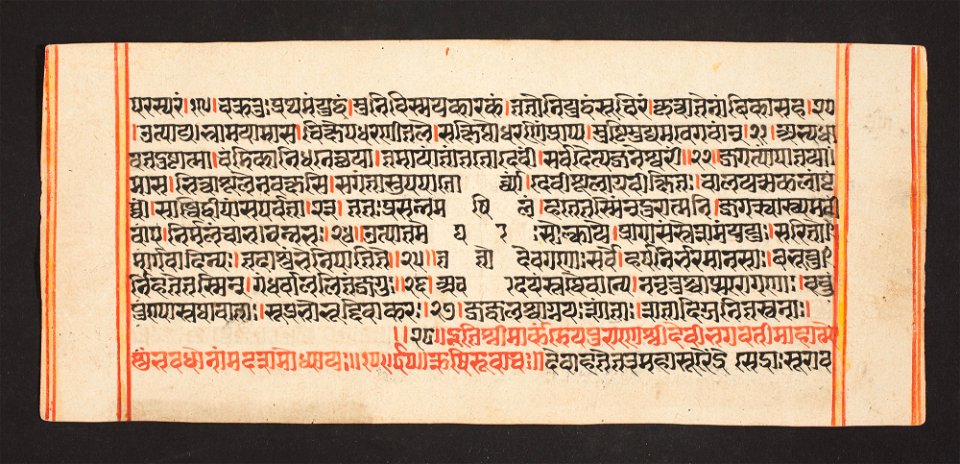 परस्परं।१९।चक्रतुःप्रथमंयुद्धं।मुनिविस्मयकारकं।ततोनियुद्धंसुचिरं।कृत्वातेनांबिकासह।२०
।उत्पात्यभ्रामयामास।चिक्षेपधरणीतले।सक्षिप्तोधरणींप्राप्य।मुष्टिमुद्यम्यवेगवान्।२१।अभ्यधा
वतदुष्टात्मा।चंडिकानिधनेच्छया।तमायांतंततोदेवी।सर्वदैत्यजनेश्वरं।२२।जगत्यांपातयां
मास।भित्त्वाशूलेनवक्षसि।सगतासुपपातो र्व्यां।देवीशूलाग्रविक्षतः।चालयन्सकलांपृ
थ्वीं।साब्धिद्वीपांसपर्वतां।२३।ततःप्रसन्नम खि लं।हतेतस्मिन्दुरात्मनि।जगत्स्वास्थ्यमती
वाप।निर्मलंचाभवन्नभः।२४।उत्पातमे घाः सोल्काये।प्रागासंस्तेशमंययुः।सरितो
मार्गवाहिन्यः।तथासंस्तत्रपातिते।२५।त तो देवगणाःसर्वे।हर्षनिर्भरमानसाः।बभूवु
र्निहतेतस्मिन्।गंधर्वाललितंजगुः।२६।अवा दयंस्तथैवान्ये।ननृतुश्चाप्सरोगणाः।ववुः
पुण्यास्तथावाताः।सुप्रभोभूद्दिवाकरः।२७।जज्वलुश्चाग्नयःशांताः।शांतादिग्जनितस्वनाः।
।।२८।।इतिश्रीमार्कंडेयपुराणेश्रीदेवीभगवतीमाहात्म्ये
शुंभवधोनामदशमोध्यायः।।१०।।ऋषिरुवाच।।देव्याहतेतत्रमहासुरेंद्रे सेंद्राःसुराव